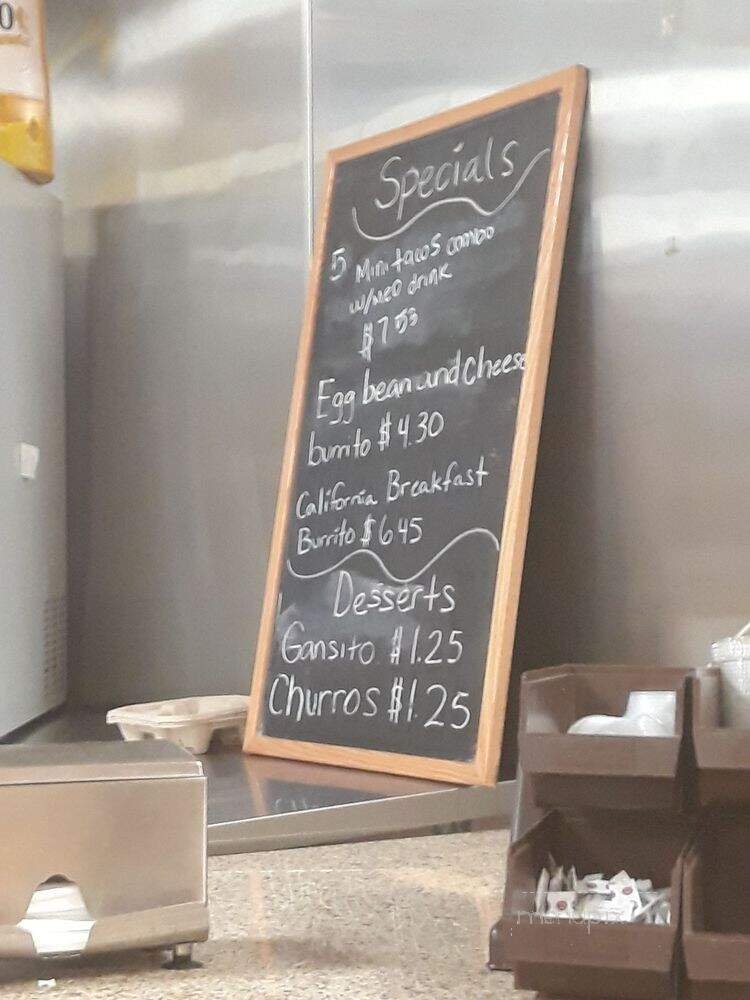 0
Specials
5 Mini tacos combo
w/med drink
$7.53
Egg bean and cheese
burrito $4.30
California Breakfast
Burrito $6.45
Desserts
Gansito $1.25
Churros $1.25